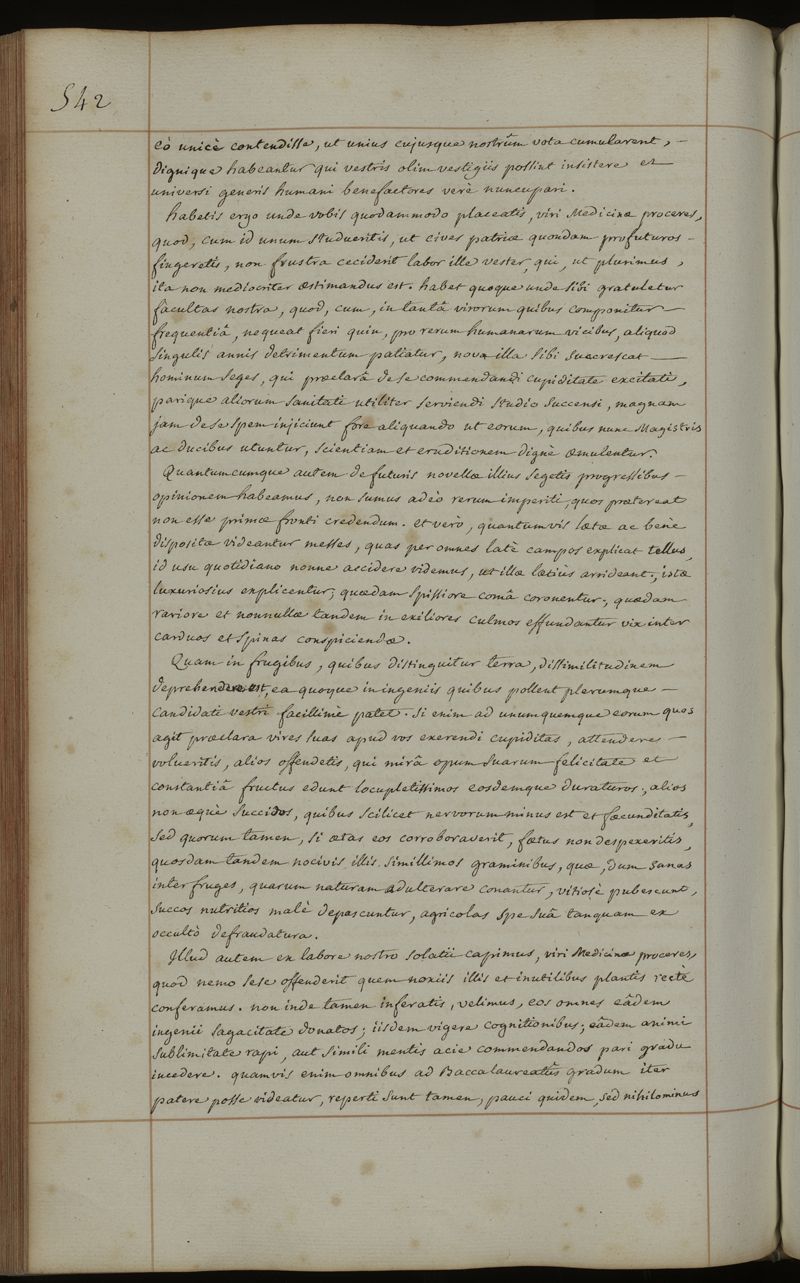 542
eò unicè contendisse, ut unius cujusque nostrûm vota cumularent, -
dignique habeantur qui vestris olim vestigiis possint insistere et
universi generis humani benefactores verè nuncupari.
habetis ergo unde vobis quodammodo placeatis, viri Medicinæ proceres,
quod, cum id unum studueritis, ut cives patriæ quondam profuturos -
fingeretis, non frustra ceciderit labor ille vester, qui, ut plurimus,
ita non mediocriter æstimandus est. habet quoque unde sibi gratuletur
facultas nostra, quod, cum, in tantâ virorum quibus componitur -
frequentiâ, nequeat fieri quin, pro rerum humanarum vicibus, aliquod
singulis annis detrimentum patiatur, nova illa sibi suacrescat —
hominum seges, qui præclarâ de se commendandi cupiditate excitati,
parique aliorum sanitati utiliter serviendi studio succensi, magnam
jam de se spem injiciunt fore aliquando ut eorum, quibus nunc Magistris
ac ducibus utuntur, scientiam et eruditionem dignè æmulentur.
Quantumcumque autem de futuris novellæ illius segetis progressibus -
opinionem habeamus, non sumus adeò rerum imperiti, quos prætereat
non esse primæ fronti credendum. et verò, quantumvis lætæ ac bene
dispositæ videantur messes, quas per omnes latè campos explicat tellus,
id usu quotidiano nonne accidere videmus, ut illæ lætiùs arrideant; istæ
luxuriosius explicentur; quædam spissiore comâ coronentur; quædam
rariore et nonnullæ tandem in exiliores culmos effundantur vix inter
carduos et spinas conspiciendæ.
Quam in frugibus, quibus distinguitur terra, dissimilitudinem
deprehendere est, ea quoque in ingeniis quibus pollent plerumque -
Candidati vestri facillimè patet. Si enim ad unumquemque eorum quos
agit præclara vires suas apud vos exerendi cupiditas, attendere -
volueritis, alios offendetis, qui mirâ opum suarum felicitate et
constantiâ fructus edunt locupletissimos eosdemque duraturos; alios
non æquè succidos, quibus scilicet nervorum minus est et fæcunditatis,
sed quorum tamen, si ætas eos corroboraverit, fætus non despexeritis,
quosdam tandem nocivis illis simillimos graminibus, quæ, dum sanas
inter fruges, quarum naturam adulterare conantur, vitiosè pubescunt,
succos nutritios malè depascuntur, agricolas spe suâ tanquam ex
occultò defraudatura.
Illud autem ex labore nostro solatii capimus, viri Medicinæ proceres,
quod nemo sese offenderit quem noxiis illis et inutilibus plantis rectè
conferamus. non inde tamen inferatis, velimus, eos omnes eâdem
ingenii sagacitate donatos; iisdem vigere cognitionibus; eâdem animi
sublimitate rapi, aut simili mentis acie commendandos pari gradu
incedere. quamvis enim omnibus ad Baccalaureatûs gradum iter
patere posse videatur, reperti sunt tamen, pauci quidem, sed nihilominus